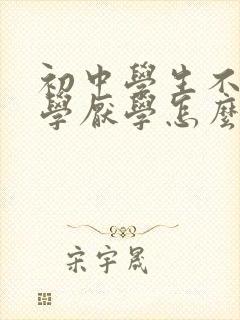 初中學生不
學厭學怎麼
宋宇晟